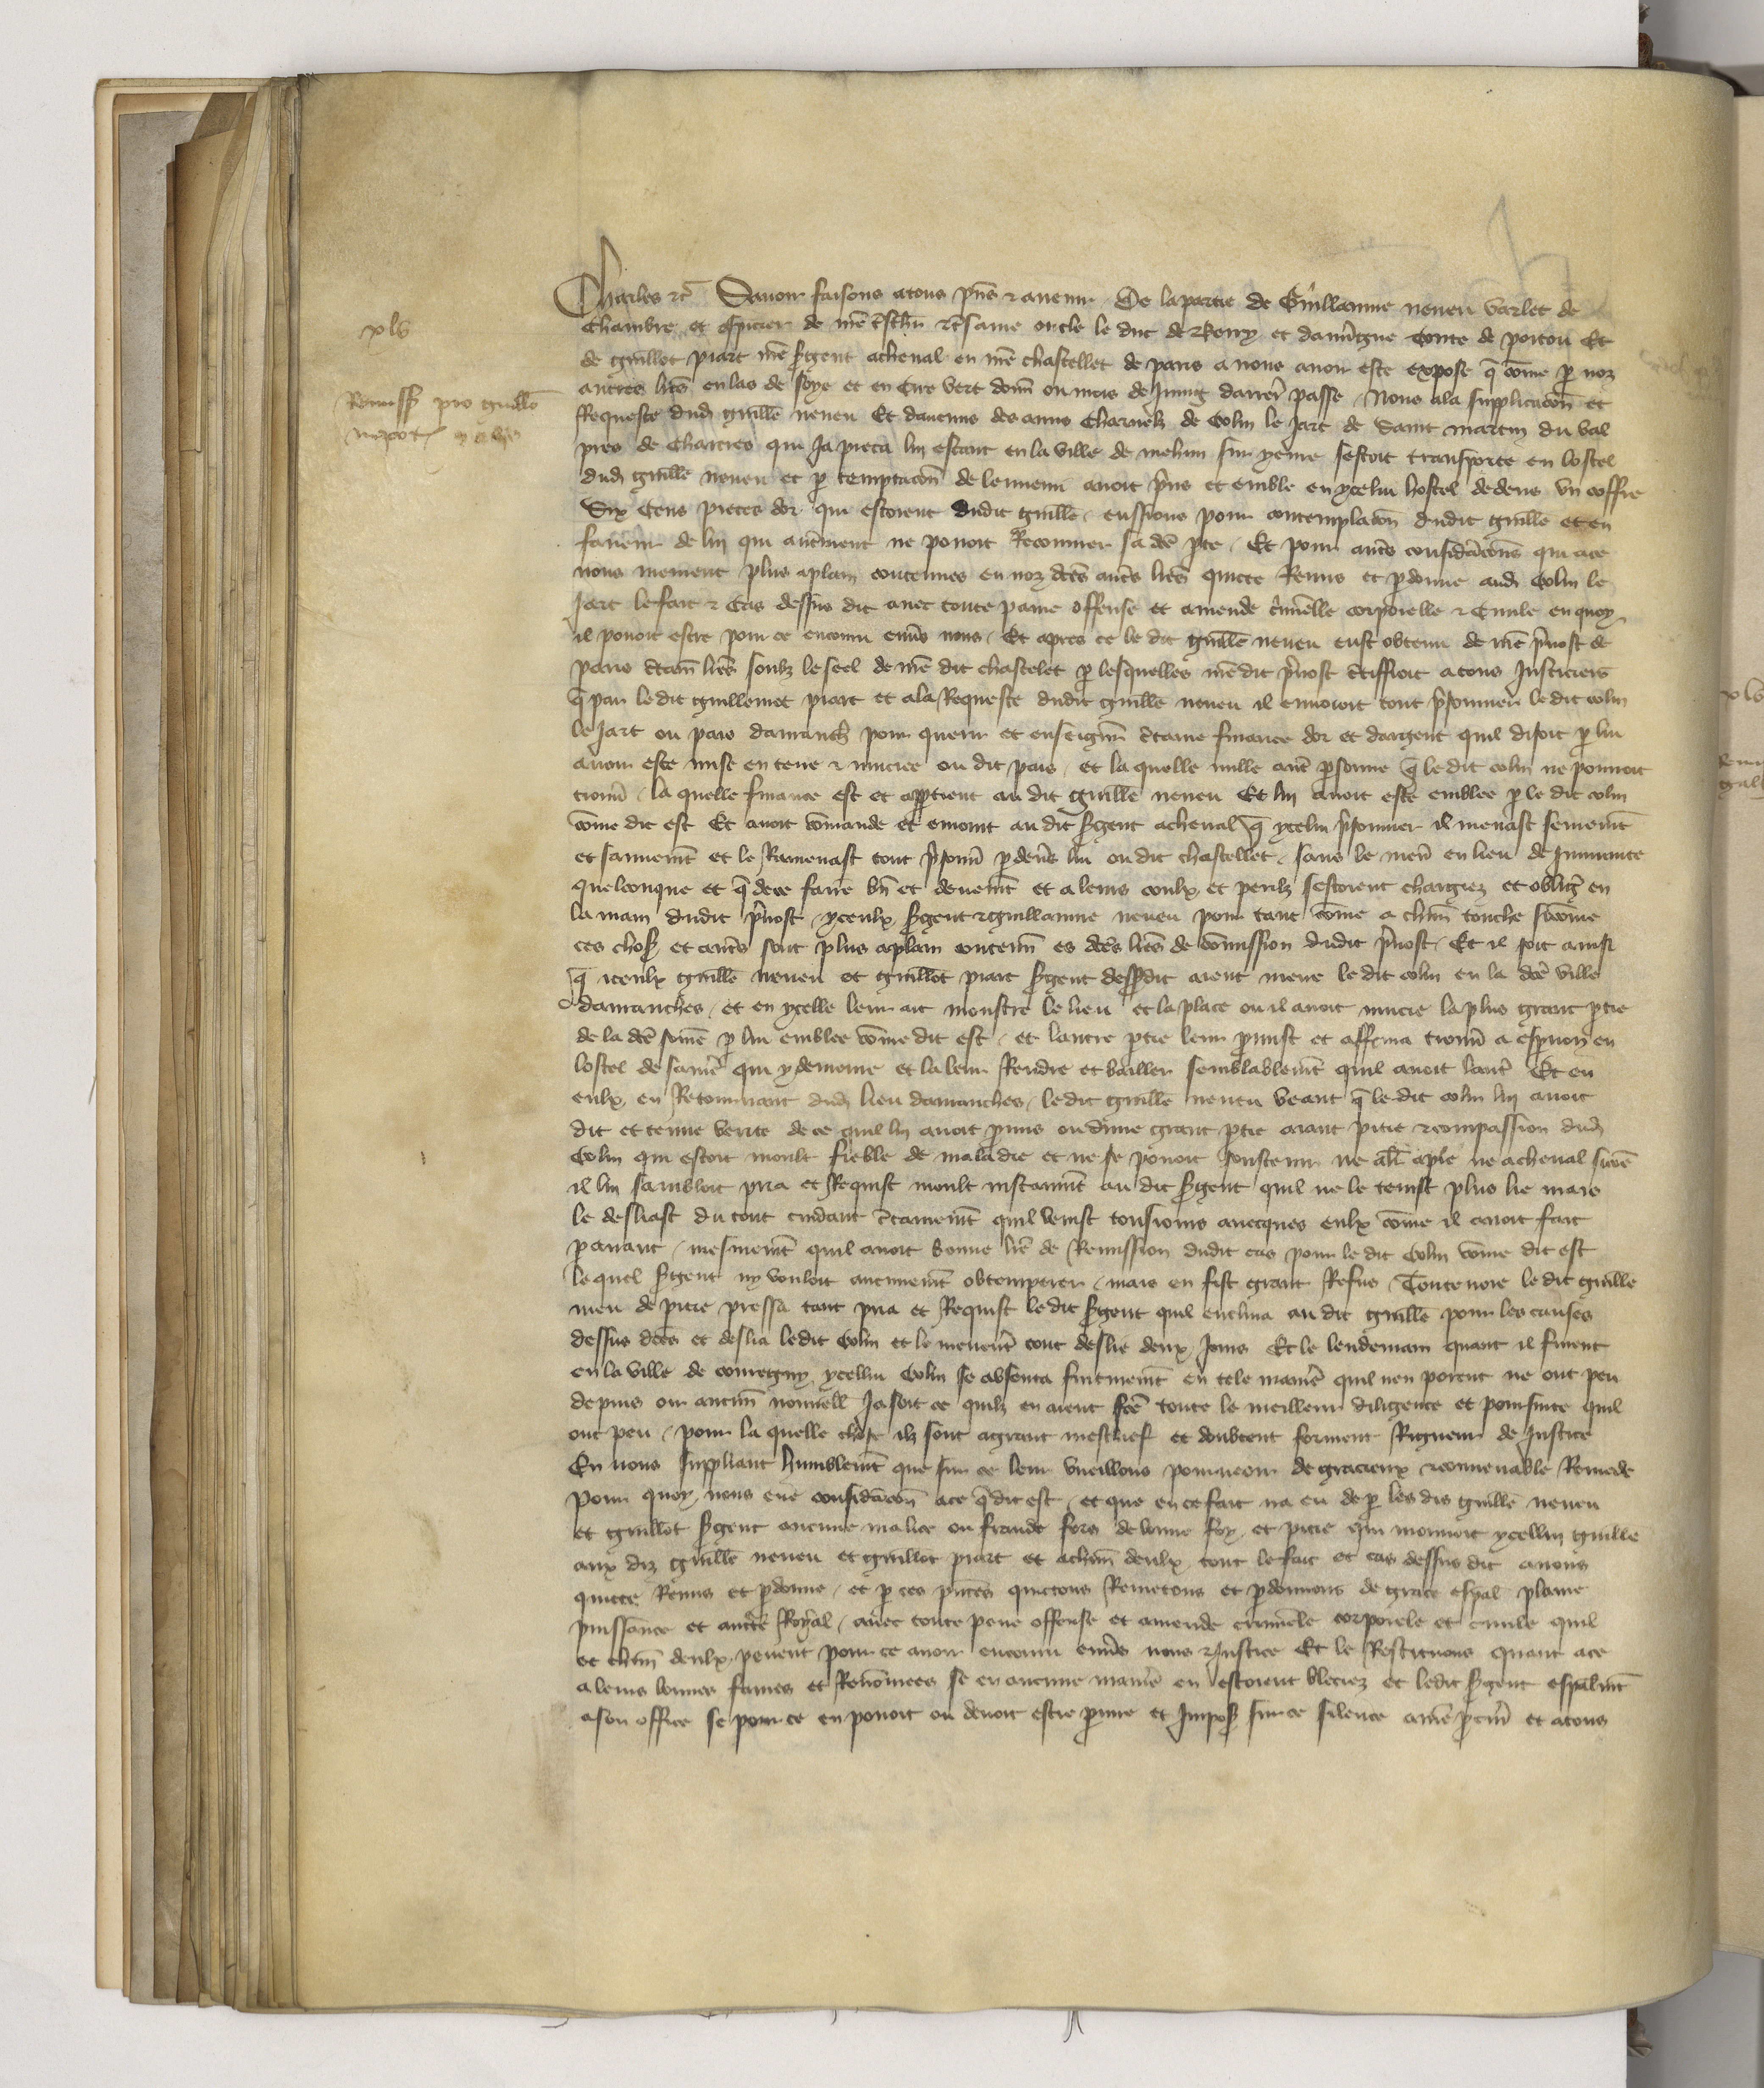 xlv
Remissio pro Guillo
nepot
Charles etc Savoir faisons a tous pns et avenir De la partie de Guillaume neveu varlet de
chambre et espicier de nre treschier et tresame oncle le duc de Berry et dauvgne conte de poitou Et
de guillot piart nre sgent acheval en nre chastellet de paris a nous avoir este expose q come p noz
autres lres en las de soye et en cire vert donn ou mois de Juing darrer passe Nous ala supplicacon et
Requeste dud guille neveu Et daucuns des amis charnelz de Colin le Jart de Saint martin du val
pres de Chartres qui Ja pieca lui estant en la ville de mehun sur yevre sestoit transporte en lostel
dud guille neveu et p temptacon de lennemi avoit pris et emble en ycelui hostel dedens un coffre
Six cens pieces dor qui estoient dudit guille eussions pour contemplacon dudit guille et en
faveur de lui qui autrement ne povoit Recouvrer sa dce pte Et pour autres consideracons qui ace
nous meuvent plus aplain contenues en noz dctes autres lres quitte Remis et pdonne aud Colin le
Jart le fait et cas dessus dit avec toute paine offense et amende criminelle corporelle et civile en quoy
il povoit estre pour ce encouru envs nous Et apres ce le dit guille neveu eust obtenu de nre pvost de
paris ctain lres soubz le seel de nre dit chastelet p lesquelles nre dit pvost ctiffioit a tous Justiciers
q par le dit guillemot piart et ala Requeste dudit guille neveu il envoioit tout pisonnier le dit colin
le Jart ou pais davranch pour querir et enseigner ctaine finance dor et dargent quil disoit p lui
avoir este mise en terre et muciee ou dit pais et la quelle nulle autre psonne q le dit colin ne pouvoit
trouver la quelle finance est et apptient au dit guille neveu Et lui avoit este emblee p le dit colin
come dit est Et avoit comande et enjoint au dit sgent acheval q ycelui pisonnier il menast seurement
et sauvement et le Ramenast tout pisonn p devs lui ou dit chastellet sans le men en lieu de Immunite
quelconque et q de ce faire bn et deuement et a leurs coulx et perilz sestoient chargiez et oblig en
la main dudit pvost yceulx sgent et guillaume neveu pour tant come a chun touche sicome
ces chos et autres sont plus aplain contenu es dctes lres de comission dudit pvost Et il soit ainsi
q iceulx guille neveu et guillot piart sgent dessusdit aient mene le dit colin en la dce ville
davranches et en ycelle leur ait monstre le lieu et la place ou il avoit mucie la plus grant ptie
de la dce some p lui emblee come dit est et lautre ptie leur pmist et afferma trouver a espnon en
lostel de sa mere qui y demeure et la leur Rendre et bailler semblablement quil avoit lautre Et en
eulx en Retournant dud lieu davranches le dit guille neveu veant q le dit colin lui avoit
dit et tenue verite de ce quil lui avoit pmis ou dune grant ptie aiant pitie et compassion dud
Colin qui estoit moult fieble de maladie et ne se povoit soustenir ne al aple ne acheval sicome
il lui sambloit pria et Requist moult instamment au dit sgent quil ne le tenist plus lie mais
le desliast du tout cuidant ctainement quil venist tousjours avecques eulx come il avoit fait
p avant mesmement quil avoit bonne lre de Remission dudit cas pour le dit Colin come dit est
le quel sgent ny vouloit aucunement obtemperer mais en fist grant Refus Toutevoie le dit guille
meu de pitie pressa tant pria et Requist le dit sgent quil enclina au dit guille pour les causes
dessus dctes et deslia ledit Colin et le menerent tout deslie deux Jours Et le lendemain quant il furent
en la ville de couregny ycellui Colin se absenta furtivement en tele maniere quil nen porent ne ont peu
depuis oir aucun nouvell Jasoit ce quilz en aient fce toute le meilleur diligence et poursuite quil
ont peu pour la quelle chose ilz sont agrant meschief et doubtent forment Rigueur de Justice
En nous suppliant humblement que sur ce leur vueillons pourveoir de gracieux et convenable Remede
Pour quoy nous eue consideracon ace q dit est et que en ce fait na eu de p les dis guille neveu
et guillot sgent aucune malice ou fraude fors de bonne foy et pitie qui mouvoit ycellui guille
aux diz guille neveu et guillot piart et achun deulx tout le fait et cas dessus dit avons
quitte Remis et pdonne et p ces pntes quictons Remetons et pdonnons de grace espal plaine
puissance et aucte Royal avec toute pene offense et amende criminele corporele et civile quil
et chun deulx pevent pour ce avoir encouru envs nous et Justice Et le Restituons quant ace
a leurs bonnes fames et Renomees se en aucune maniere en estoient bleciez et ledit sgent espalmt
a son office se pour ce en povoit ou devoit estre prive et Impos sur ce silence a nre pcur et atous